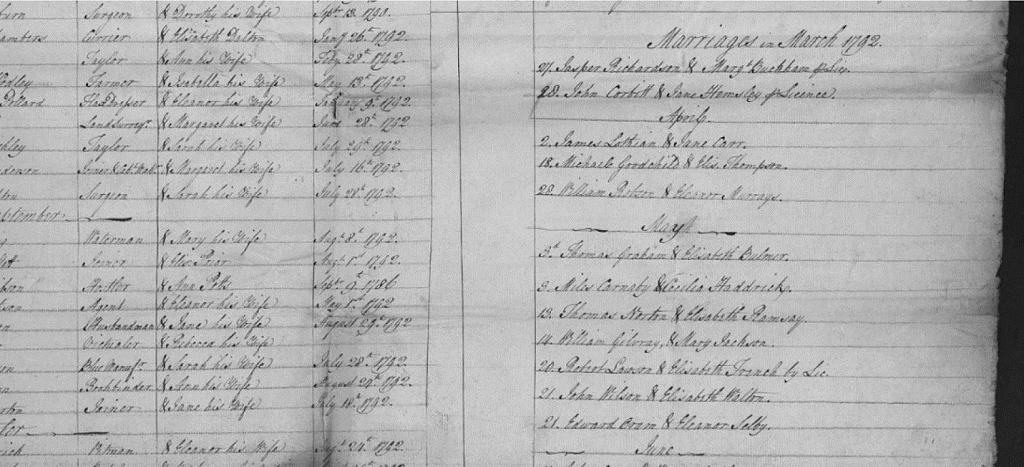 Surgeon & Dorothy his Wife Sept. 13. 1790.
Currier & Elisabeth Dalton Jany. 26th 1792.
Taylor & Ann his Wife Feby. 28th 1792.
Farmer & Isabella his Wife May 13th 1792.
Pollard & Eleanor his Wife 9th 1792.
Landsurveyr. & Margaret his Wife June 28th 1792
Taylor & Sarah his Wife July 29th 1792.
& Margaret his Wife July 16th 1792.
Surgeon & Sarah his Wife July 28th 1792.
Waterman & Mary his Wife Augt. 8th 1792.
Joiner & Elis. Prior Augt. 1st 1792.
& Ann Potts Sept. 9th 1786
Agent & Eleanor his Wife May 1st 1792
Husbandman & Jane his Wife August 29th 1792
& Rebecca his Wife
& Sarah his Wife July 28th 1792.
Bookbinder & Ann his Wife August 29th 1792.
Joiner & Jane his Wife July 18th 1792.
Pitman & Eleanor his Wife 24th 1792.
Marriages in March 1792.
27. Jasper Richardson & Margt. Buckham
28. John Corbitt & Jane Hemsley Licence.
April.
2. James Lothian & Jane Carr.
18. Michael Goodchild & Elis. Thompson.
28. William & Eleanor Murray.
May
3d. Thomas Graham & Elisabeth Bulmer.
9. Miles Carnaby & Cecilia Haddrick.
13. Thomas Norton & Elisabeth Ramsay.
14. William Gilvray & Mary Jackson.
20. Robert Lawson & Elisabeth French by Lic.
21. John Wilson & Elisabeth Walton.
21. Edward Crom & Eleanor Selby.
June